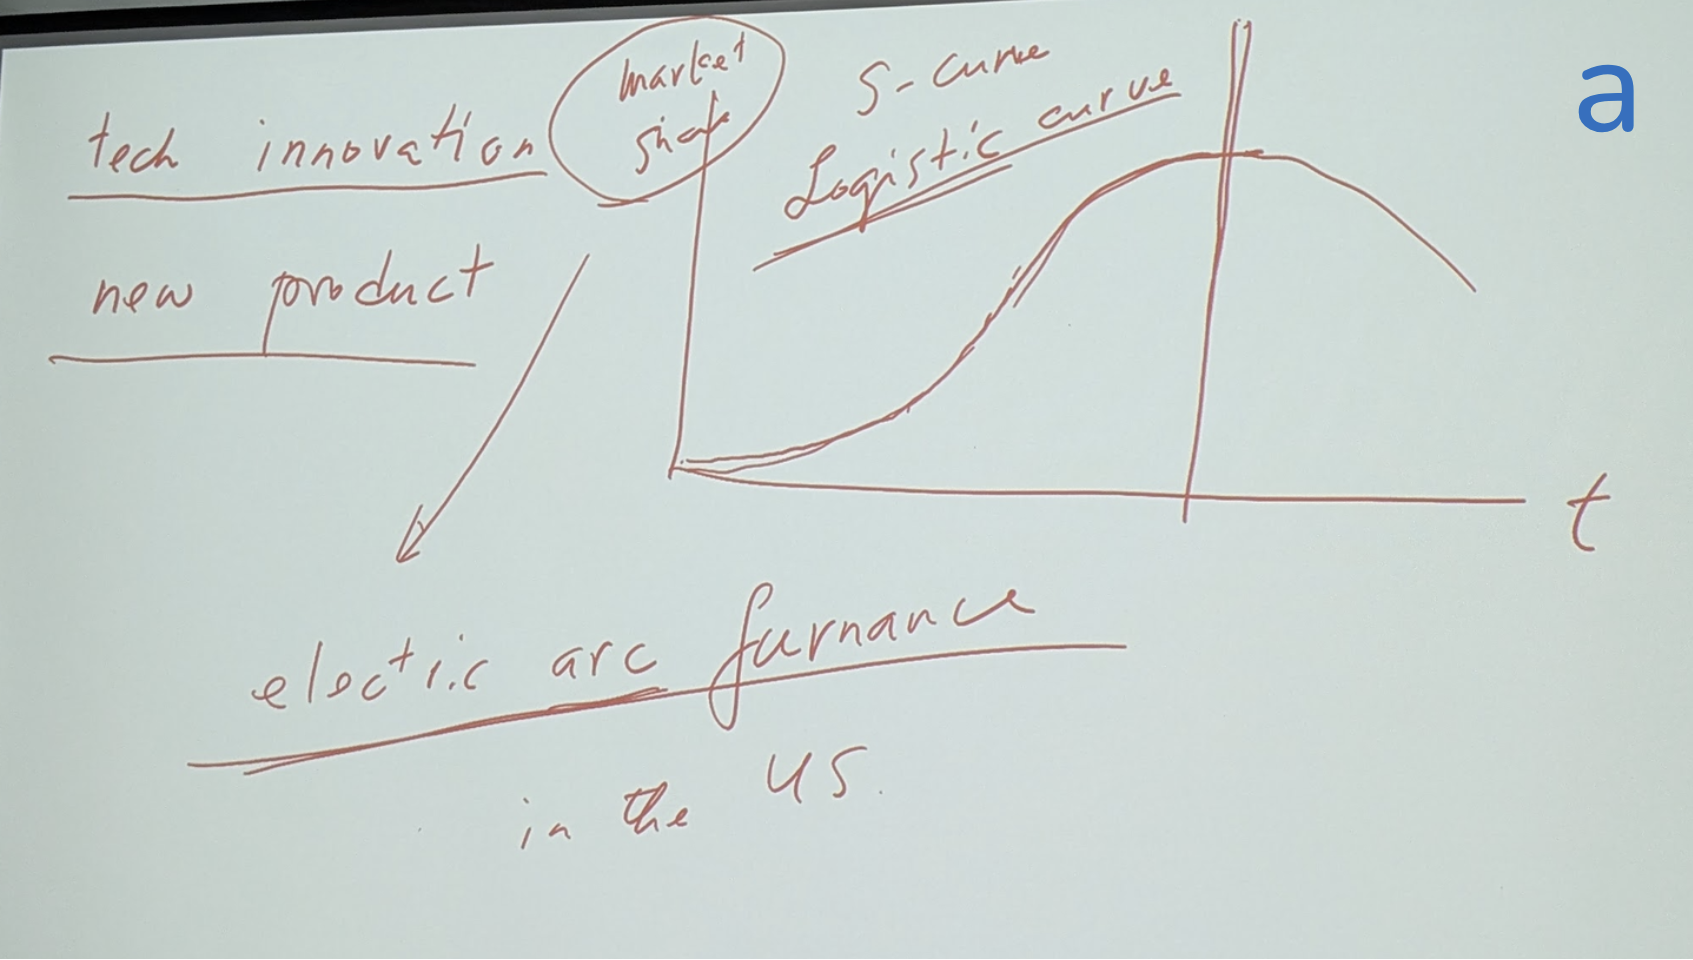 tech innovation
new product
market
share
S-curve
Logistic curve
a
t
electric arc furnance
in the US.